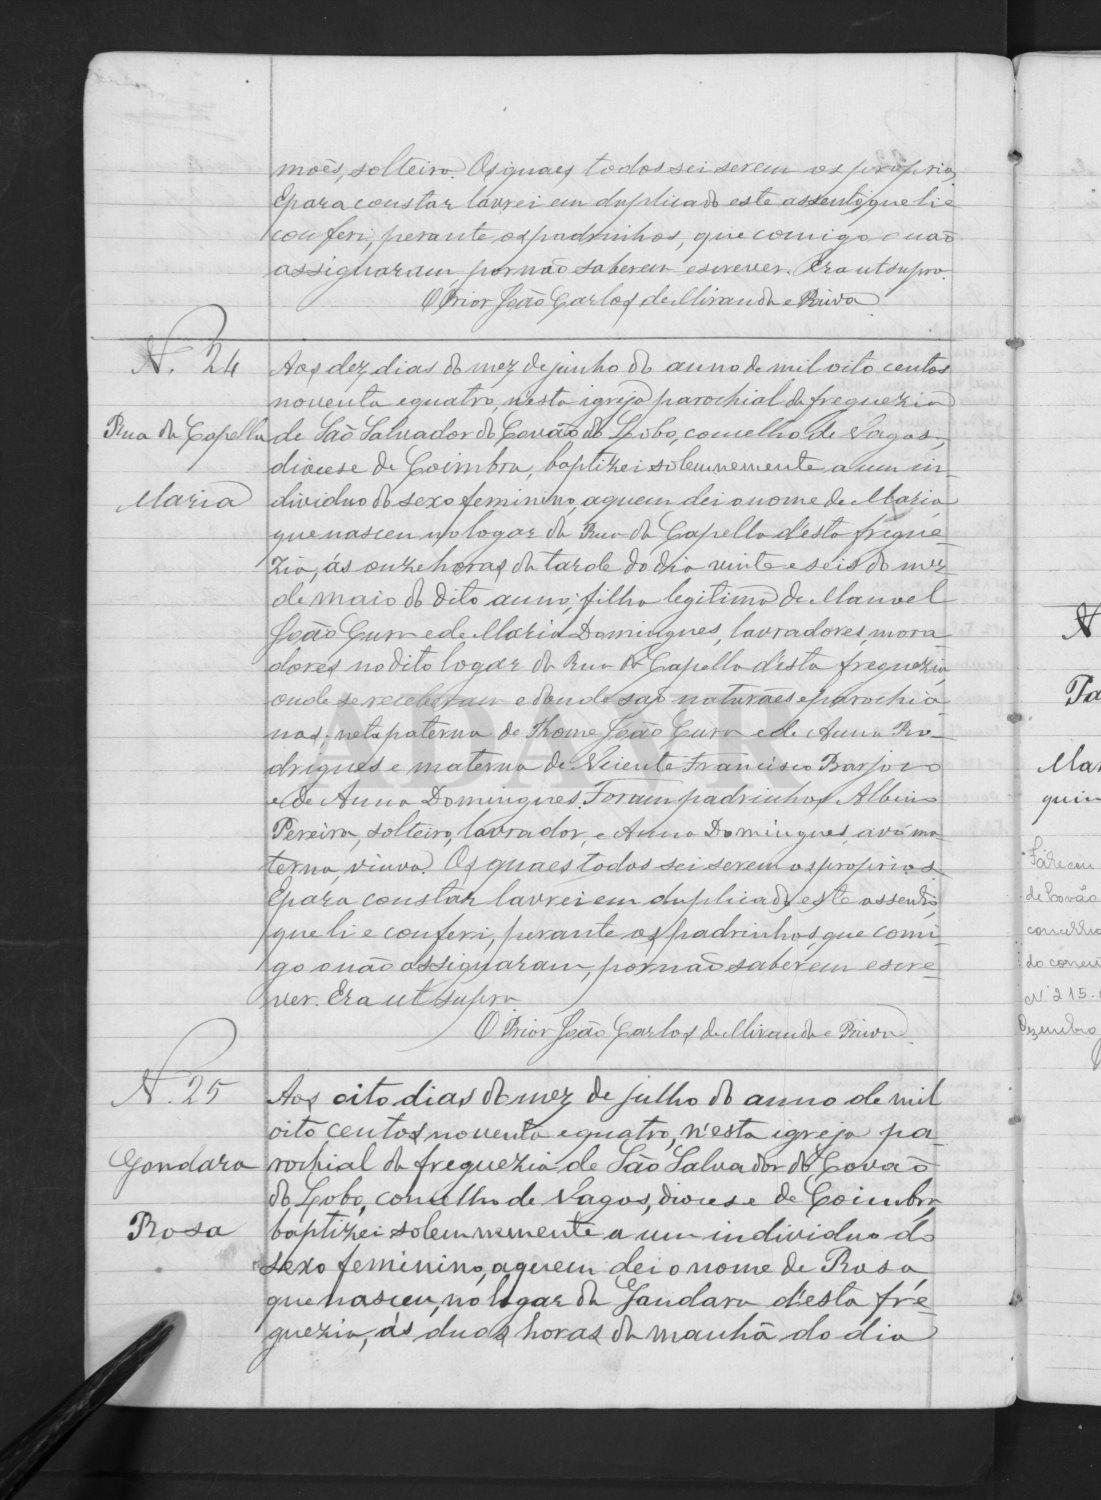 moẽs, solteira. Os quaes todos sei serem os proprios
E para constar lavrei em duplicado este assento, que li e
conferi, perante os padrinhos, que comigo o não
assignaram por não saberem escrever. Era ut supra.
O Prior João Carlos de Miranda e Paiva
N. 24
Rua da Capella
Maria
Aos dez dias do mez de junho do anno de mil oito centos
noventa e quatro, nesta igreja parochial da freguezia
de São Salvador do Covão do Lobo, concelho de Vagos,
diocese de Coimbra, baptizei solemnemente a um in-
dividuo do sexo feminino, a quem dei o nome de Maria
que nasceu no logar da Rua da Capella d'esta fregue-
zia, ás onze horas da tarde do dia vinte e seis do mez
de maio do dito anno, filha legitima de Manoel
João Cura e de Maria Domingues, lavradores, mora-
dores no dito logar da Rua da Capella d'esta freguezia,
onde se receberam e donde são naturaes e parochia-
nos; neta paterna de Thome João Cura e de Anna Ro-
drigues e materna de Vicente Francisco Barjoco
e de Anna Domingues. Foram padrinhos Albino
Pereira, solteiro, lavrador, e Anna Domingues, avó ma-
terna, viuva. Os quaes todos sei serem os proprios
E para constar lavrei em duplicado este assento,
que li e conferi, perante os padrinhos que comi-
go o não assignaram, por não saberem escre-
ver. Era ut supra
O Prior João Carlos de Miranda e Paiva.
N. 25
Gandara
Rosa
Aos oito dias do mez de julho do anno de mil
oito centos noventa e quatro, n'esta igreja pa-
rochial da freguezia de São Salvador do Covão
do Lobo, concelho de Vagos, diocese de Coimbra,
baptizei solemnemente a um individuo do
sexo feminino, a quem dei o nome de Rosa
que nasceu, no logar da Gandara d'esta fre-
guezia, ás duas horas da manhã do dia
N
Ta
Mar
quin
Faleceu
de Covão
concelho
do corren
Nº 215.
Dezembro
ADAVR